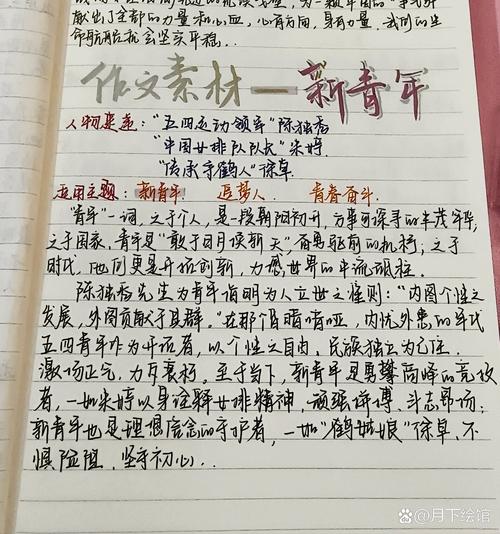 献出了全部的力量和心血，心有方向，身有力量，我们的生
命航船后抗会坚实平稳...
作文素材—新青年
人物渠道："五四运动领军"陈独秀
"中国女排队队长"朱婷
"传承守鹤人"徐卓
适用主题：新青年 追梦人 青春奋斗
"青年"一词，之于个人，是一段朝阳初升，万事可探寻的丰茂年华，
之于国家，青年是"敢于日月换新天"，奋勇驱前的机杼；之于
时代，他们更是开拓创新，力撼世界的中流砥柱
陈独秀先生为青年指明为人立世之准则："内图个性之
发展，外图贡献于其群。"在那个昏暗喑哑，内忧外患的年代
五四青年作为开拓者，以个性之自由，民族独立为己任，
激扬正气，力斥衰朽。至于当下，新青年是勇攀高峰的竞攻
者，一如朱婷以身诠释女排精神，顽强拼搏、斗志昂扬；
新青年也是理想信念的守护者，一如"鹤姑娘"徐卓，不
惧险阻，坚守初心...
百家号/月下绘馆